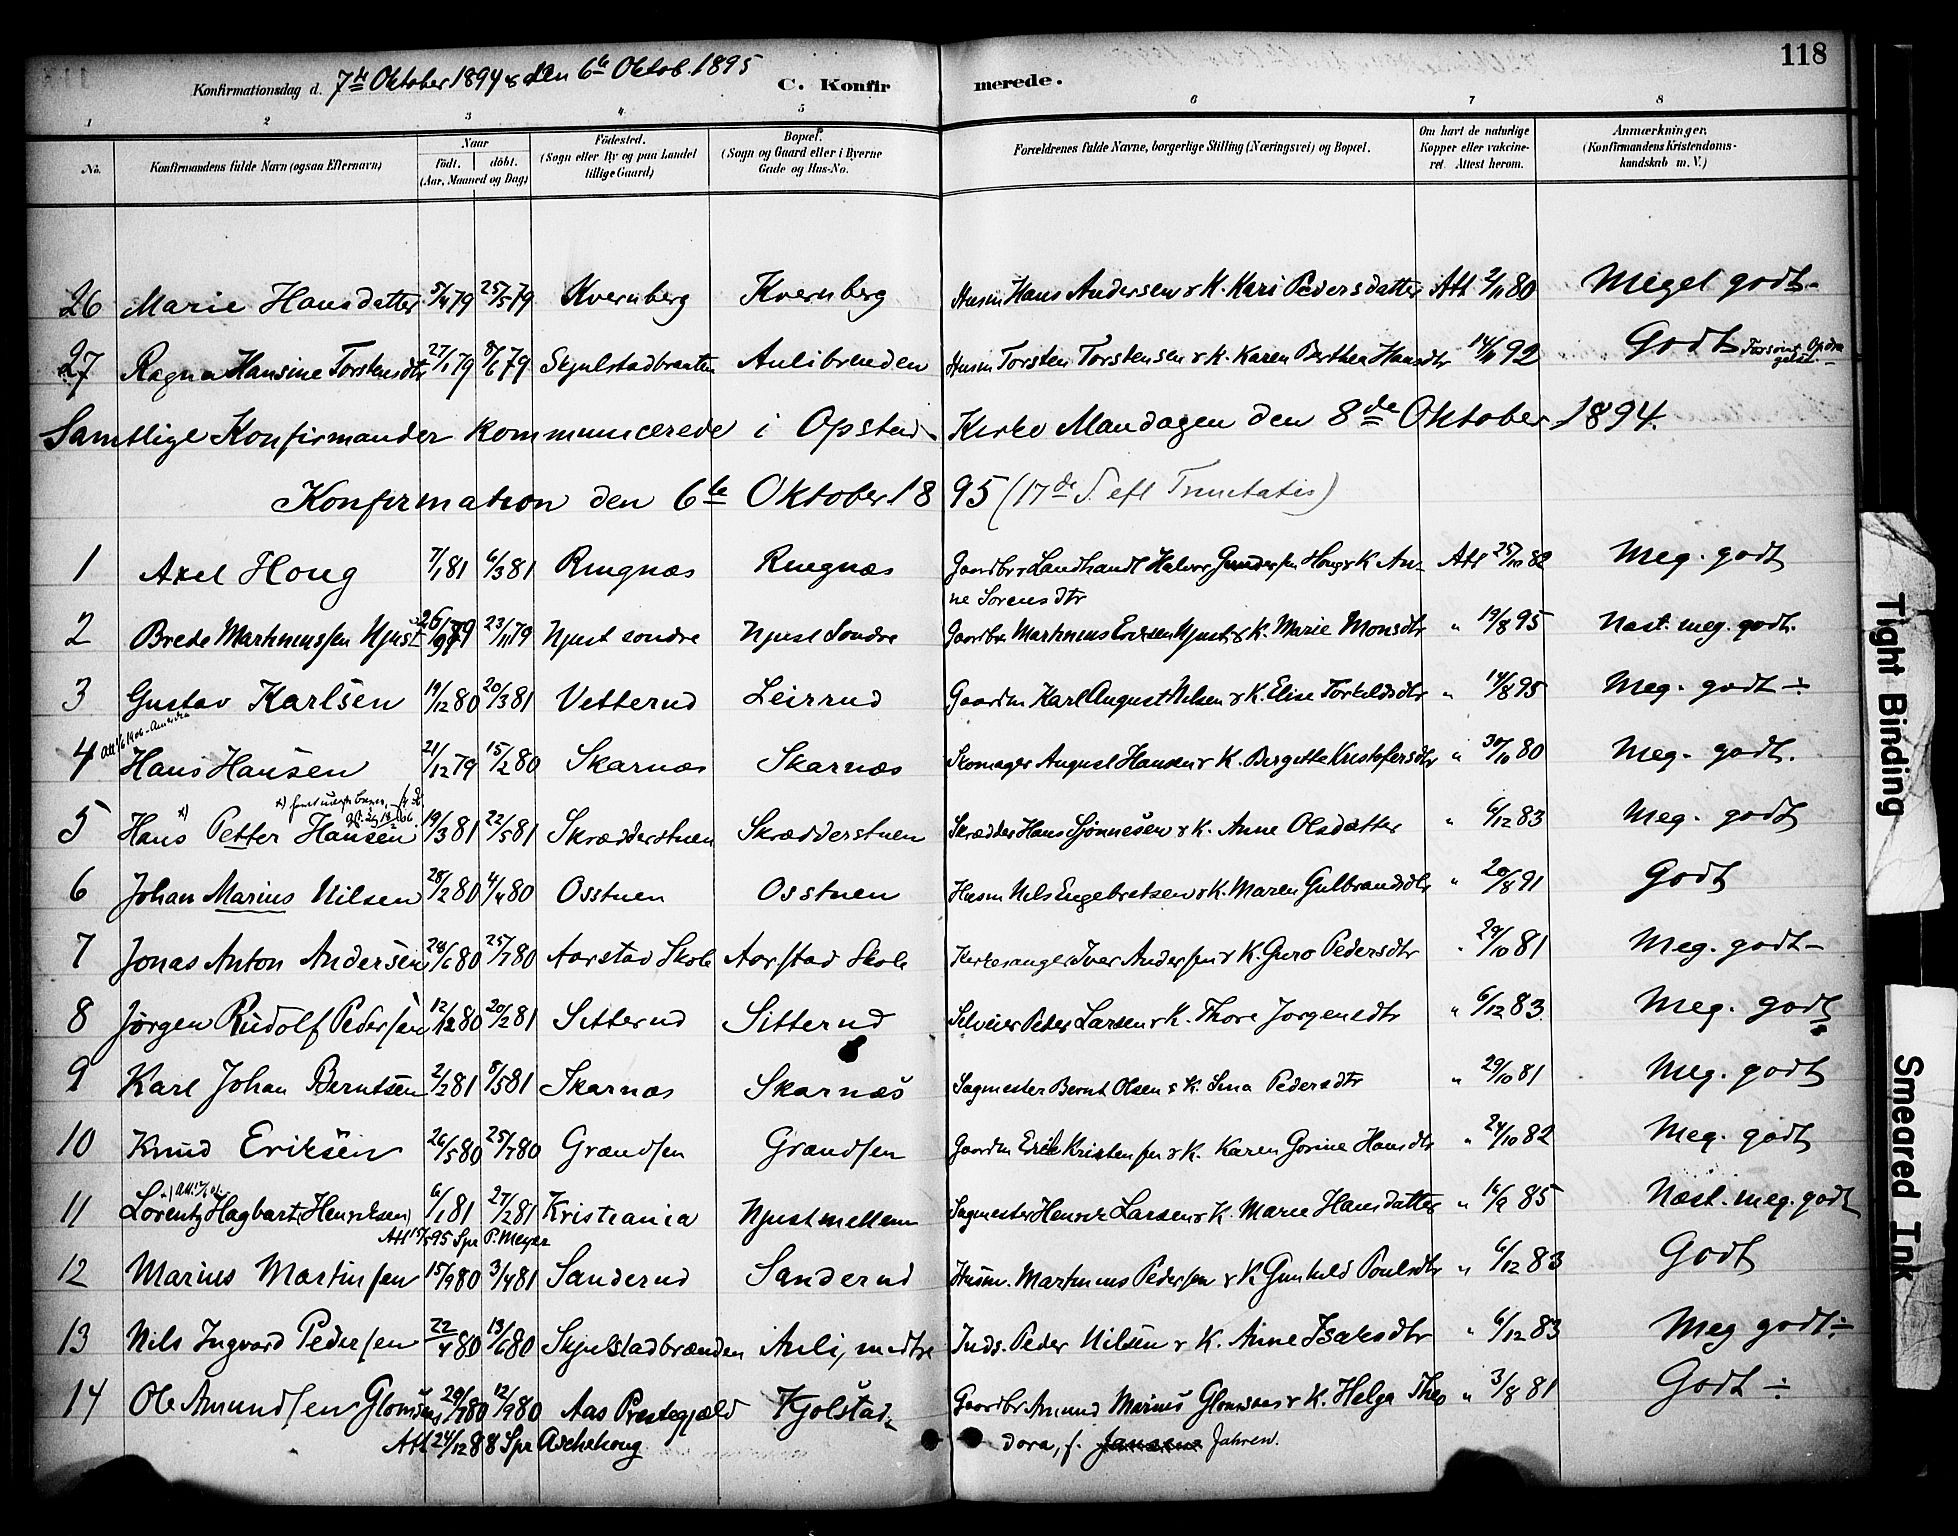 118
Konfirmationsdag d. 7de Oktober 1894 & den 6te Oktob. 1895 C. Konfirmerede.
1 2 3 4 5 6 7 8
No. Konfirmandens fulde Navn (ogsaa Efternavn) Naar födt. döbt. (Aar, Maaned og Dag) Födested. (Sogn eller By og paa Landet tillige Gaard) Bopæl. (Sogn og Gaard eller i Byerne Gade og Hus-No. Forældrenes fulde Navne, borgerlige Stilling (Næringsvei) og Bopæl. Om havt de naturlige Kopper eller vakcineret. Attest herom. Anmærkninger. (Konfirmandens Kristendomskundskab m. V.)
26 Marie Hansdatter 5/4 79 25/5 79 Kvernberg Kvernberg Husm Hans Andersen & K. Kari Pedersdatter Att 2/11 80 Meget godt
27 Ragna Hansine Torstensdtr 27/1 79 8/6 79 Skjulstadbraaten Aulibrenden Husm Torsten Torstensen & K. Karen Berthea Hansdtr 14/11 92 Godt
Samtlige Konfirmander kommunicerede i Opstad Kirke Mandagen den 8de Oktober 1894.
Konfirmation den 6te Oktober 1895 (17de S. eft Trinitatis)
1 Axel Houg 7/1 81 6/3 81 Ringnæs Ringnæs Gaardbr & Landhandl Halvor Gundersen Houg & K An-
ne Sorensdtr Att 25/10 82 Meg. godt
2 Brede Martinussen Njust 26/9 79 23/11 79 Njust sondre Njust Sondre Gaardbr. Martinus Evensen Njust & K. Marie Monsdtr " 19/8 95 Næst. meg. godt.
3 Gustav Karlsen 19/12 80 20/3 81 Vetterud Leirrud Gaardm Karl August Nilsen & K. Elise Torkildsdtr " 14/8 95 Meg. godt ÷
Att 1/6 1906 - Amerika
4 Hans Hansen 21/12 79 15/2 80 Skarnæs Skarnæs Skomager August Hansen & K. Bergette Kristofersdtr " 30/10 80 Meg. godt.
5 Hans x) Petter Hansen 19/3 81 22/5 81 Skrædderstuen Skrædderstuen Skrædder Hans Sjønnesen & K. Anne Olsdatter " 6/12 83 Meg. godt
6 Johan Marius Nilsen 28/2 80 4/4 80 Osstuen Osstuen Husm Nils Engebretsen & K. Maren Gulbrandsdtr " 20/8 91 Godt
7 Jonas Anton Andersen 28/6 80 25/7 80 Aarstad Skole Aarstad Skole Kirkesanger Iver Andersen & K. Guro Pedersdtr " 29/10 81 Meg. godt
8 Jørgen Rudolf Pedersen 12/12 80 20/2 81 Sitterud Sitterud Selveier Peder Larsen & K. Thore Jorgensdtr " 6/12 83 Meg. godt
9 Karl Johan Berntsen 2/2 81 8/5 81 Skarnæs Skarnæs Sagmester Bernt Olsen & K. Sina Pedersdtr " 29/10 81 Meg. godt
10 Knud Eriksen 26/5 80 25/7 80 Grandsen Grandsen Gaardm Erik Kristensen & K. Karen Gorine Hansdtr " 24/10 82 Meg. godt
11 Lorentz Hagbart (Henriksen) 6/1 81 27/2 81 Kristiania Njust mellem Sagmester Henrik Larsen & K. Marie Hansdatter " 16/9 85 Næst. meg. godt
Spr P. Meyer
12 Marius Martinsen 15/9 80 3/4 81 Sanderud Sanderud Husm. Martinus Pedersen & K Gunhild Poulsdtr " 6/12 83 Godt
13 Nils Ingvard Pedersen 22/4 80 13/6 80 Skjulstadbrænden Auli, nedtre Inds. Peder Nilsen & K. Anne Isaksdtr " 6/12 83 Meg godt ÷
14 Ole Amundsen Glomsaas 20/7 80 12/9 80 Aas Prestegjæld Kjolstad Gaardbr Amund Marius Glomsaas & K. Helga Theo " 3/8 81 Godt ÷
Att 24/12 88 Spr Aschehoug dora, f. Jahren.
Tight Binding
Smeared Ink